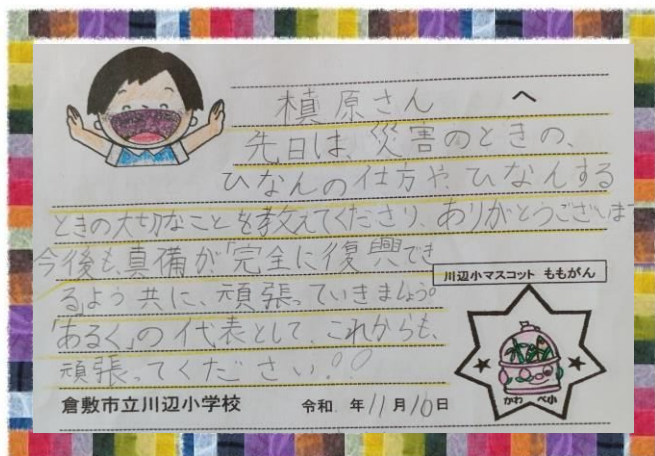 槙原さん へ
先日は、災害のときの、
ひなんの仕方や、ひなんする
ときの大切なことを教えてくださり、ありがとうございま
今後も、真備が「完全に復興でき
るよう共に、頑張っていきましょう。
「あるく」の代表として、これからも、
頑張ってください!!
川辺小マスコット ももがん
かわべ小
倉敷市立川辺小学校 令和 年11月10日